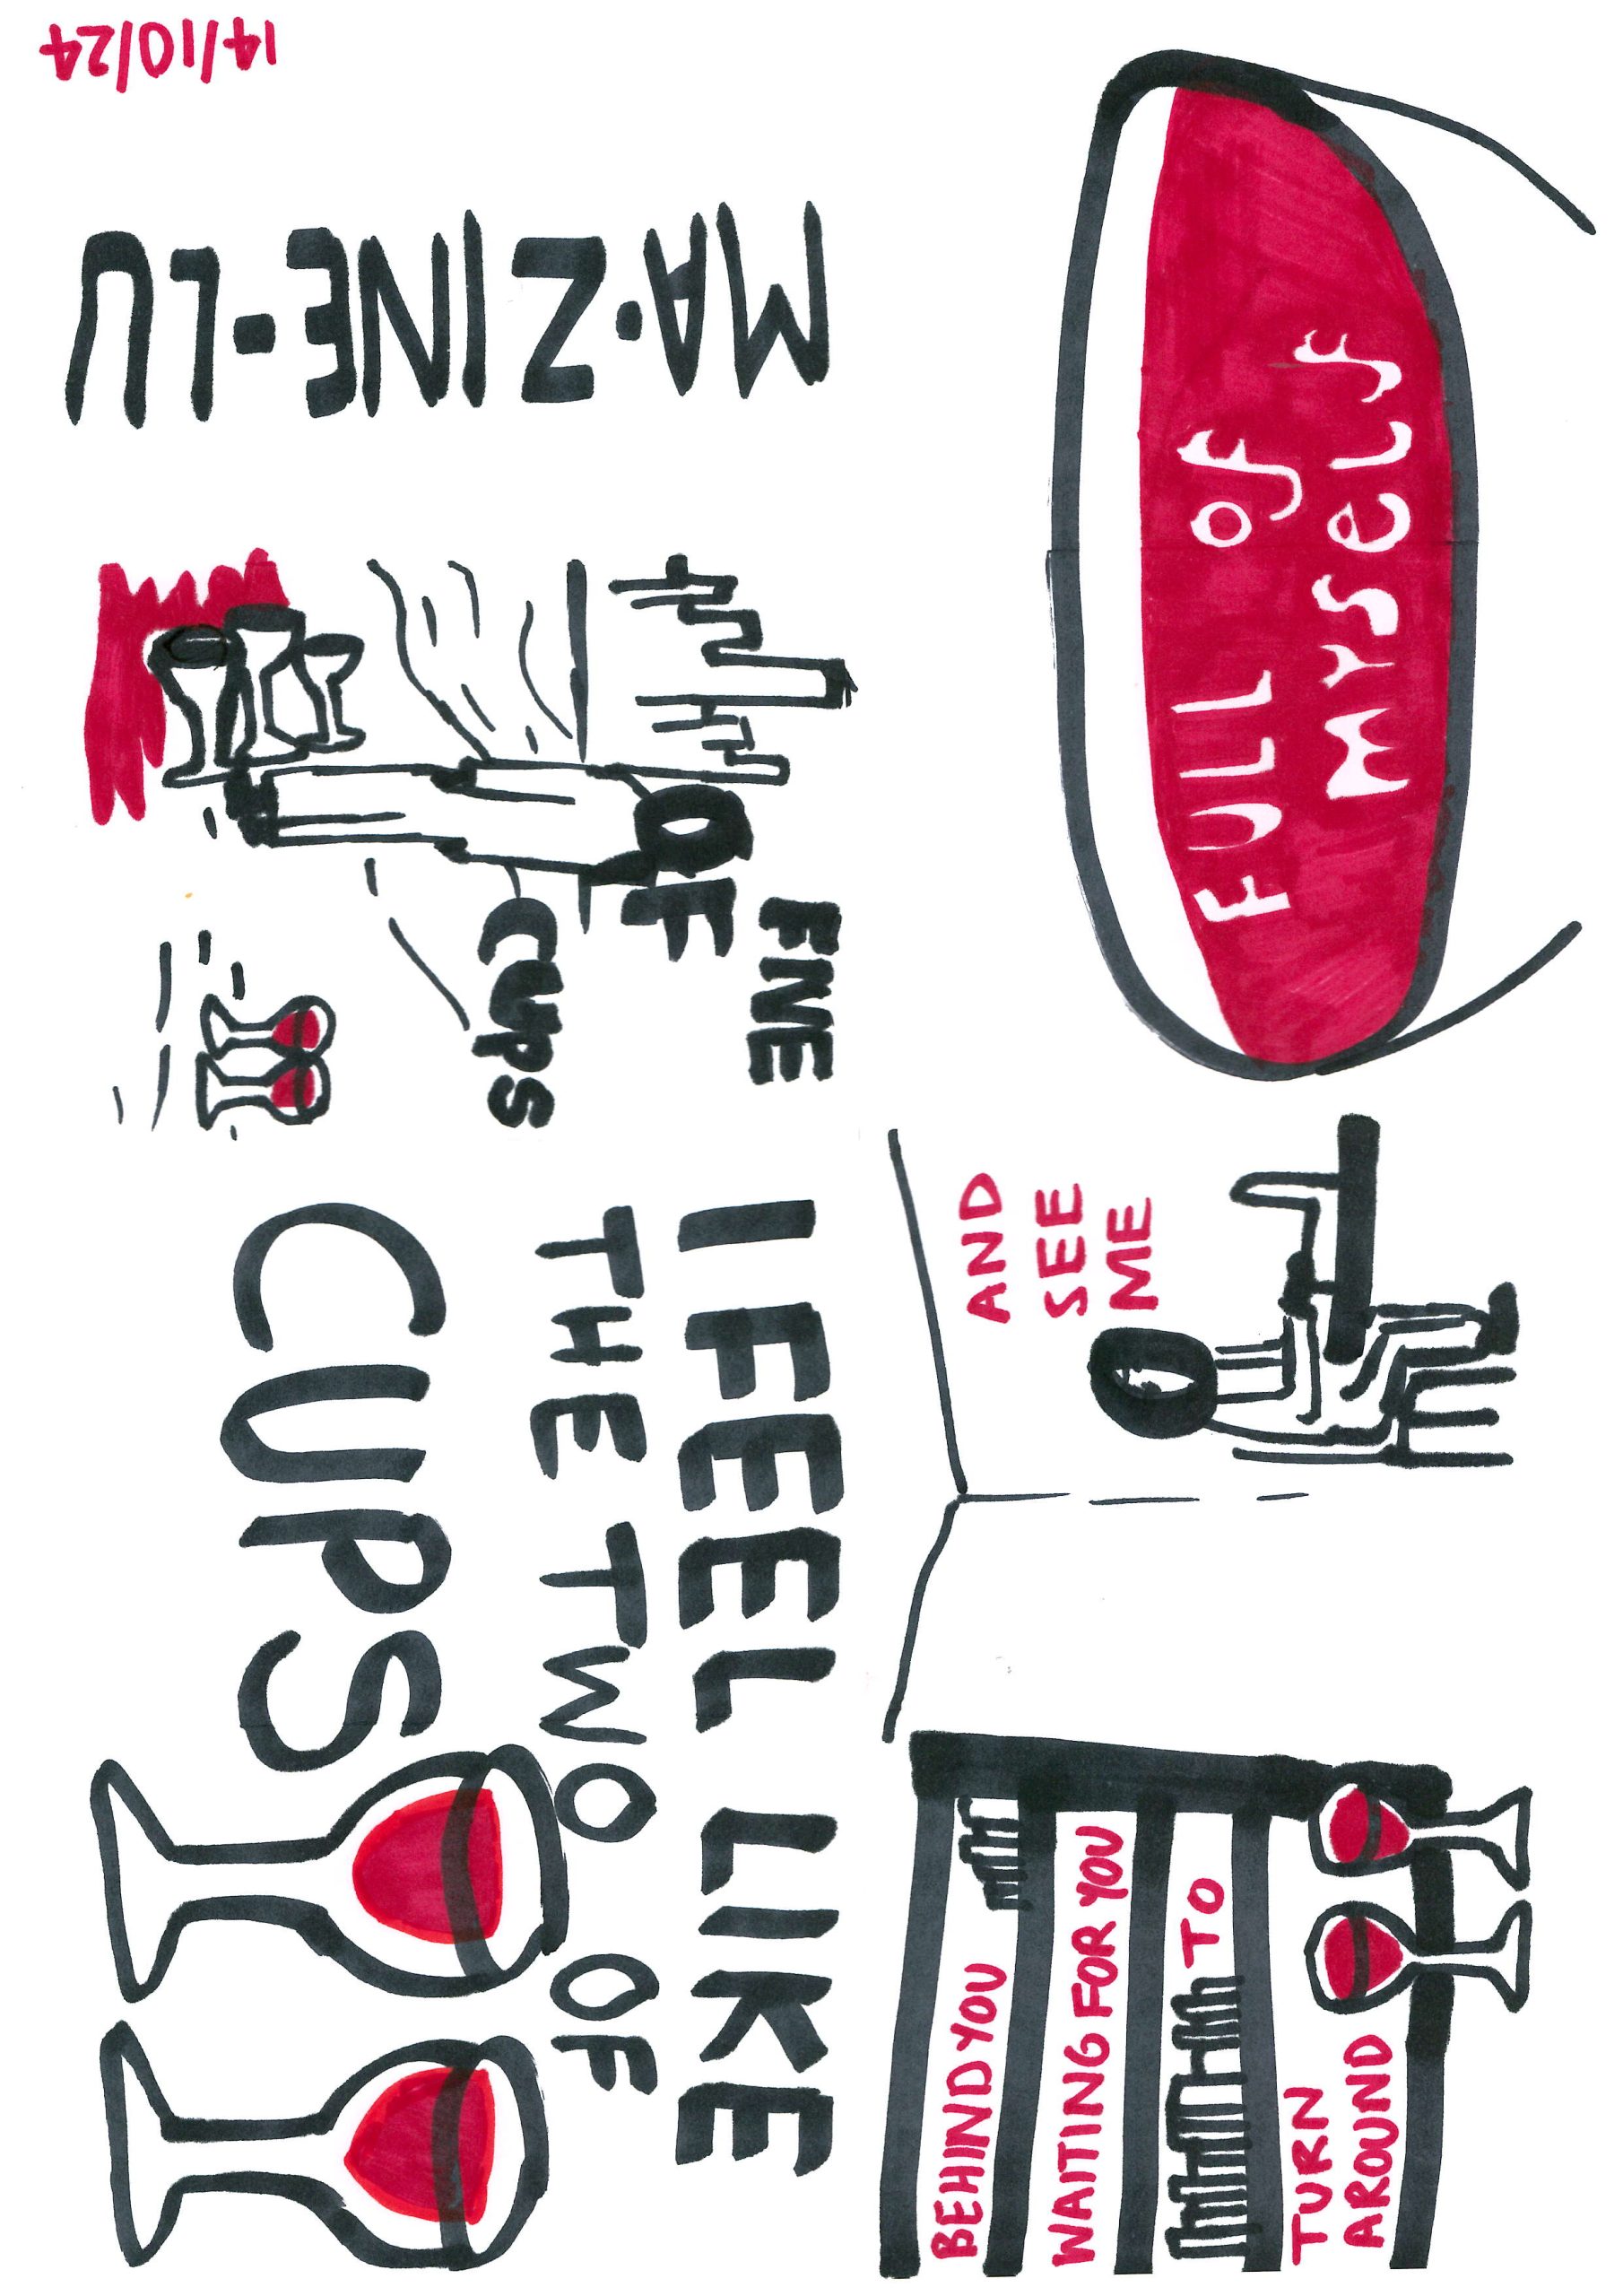 14/10/24
MA·ZINE-LU
FNE
OF
CUPS
I FEEL LIKE
THE TWO OF
CUPS
BEHIND YOU
WAITING FOR YOU
TO
TURN
AROUND
AND
SEE
ME
FULL OF
MYSELF